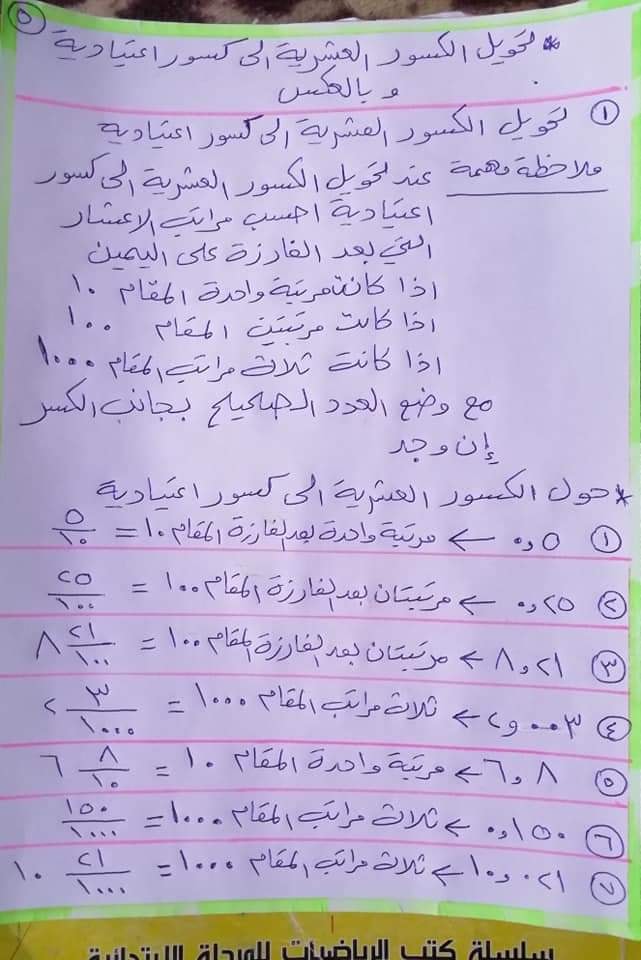 ٥
* تحويل الكسور العشرية الى كسور اعتيادية
وبالعكس
١ تحويل الكسور العشرية الى كسور اعتيادية
ملاحظة مهمة عند تحويل الكسور العشرية الى كسور
اعتيادية احسب مراتب الاعشار
التي بعد الفارزة على اليمين
اذا كانت مرتبة واحدة المقام ١٠
اذا كانت مرتبتين المقام ١٠٠
اذا كانت ثلاث مراتب المقام ١٠٠٠
مع وضع العدد الصحيح بجانب الكسر
إن وجد
* حول الكسور العشرية الى كسور اعتيادية
١ ٠,٥ ← مرتبة واحدة بعد الفارزة المقام ١٠ = ٥/١٠
٢ ٠,٢٥ ← مرتبتان بعد الفارزة المقام ١٠٠ = ٢٥/١٠٠
٣ ٨,٢١ ← مرتبتان بعد الفارزة المقام ١٠٠ = ٨ ٢١/١٠٠
٤ ٢,٠٠٣ ← ثلاث مراتب المقام ١٠٠٠ = ٢ ٣/١٠٠٠
٥ ٦,٨ ← مرتبة واحدة المقام ١٠ = ٦ ٨/١٠
٦ ٠,١٥٠ ← ثلاث مراتب المقام ١٠٠٠ = ١٥٠/١٠٠٠
٧ ١٠,٠٢١ ← ثلاث مراتب المقام ١٠٠٠ = ١٠ ٢١/١٠٠٠
سلسلة كتب الرياضيات للمرحلة الابتدائية